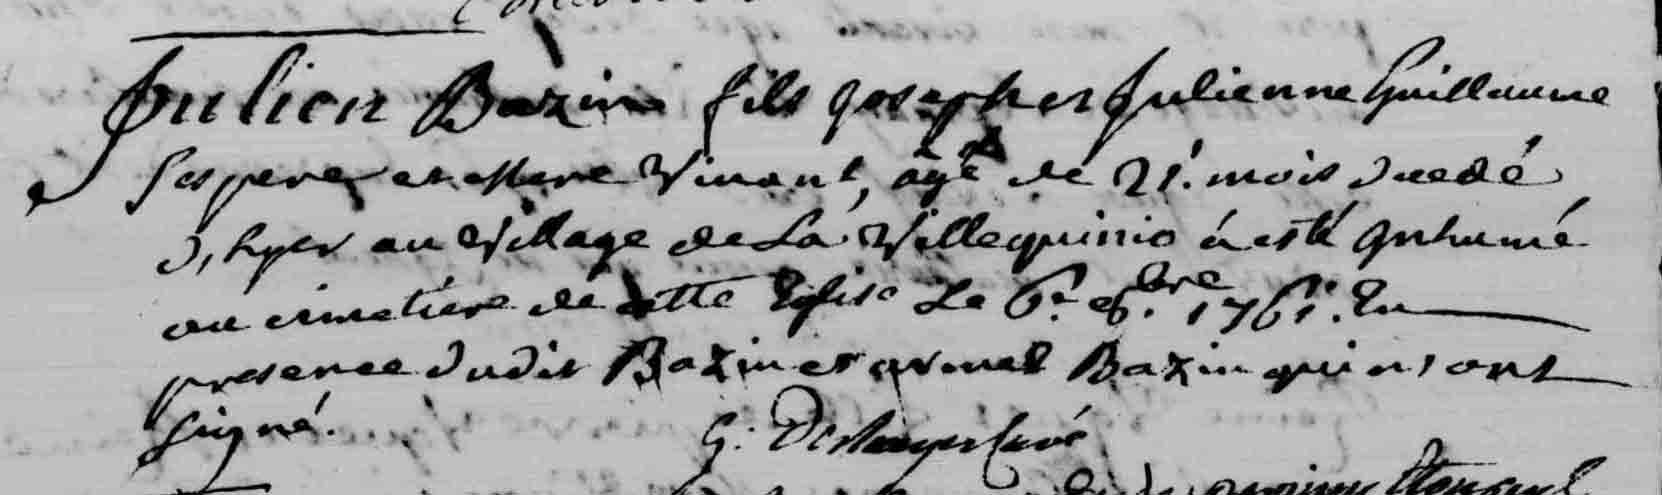 Julien Bazin fils Joseph et Julienne Guillaume
ses pere et Mere Vivant, âgé de 21. mois decedé
d'hyer au Village de La Villequinio a esté Inhumé
au cimetiere de cette Eglise Le 6.e 8.bre 1761. En
presence dudit Bazin et armel Bazin qui n'ont
signé.
G: Curé